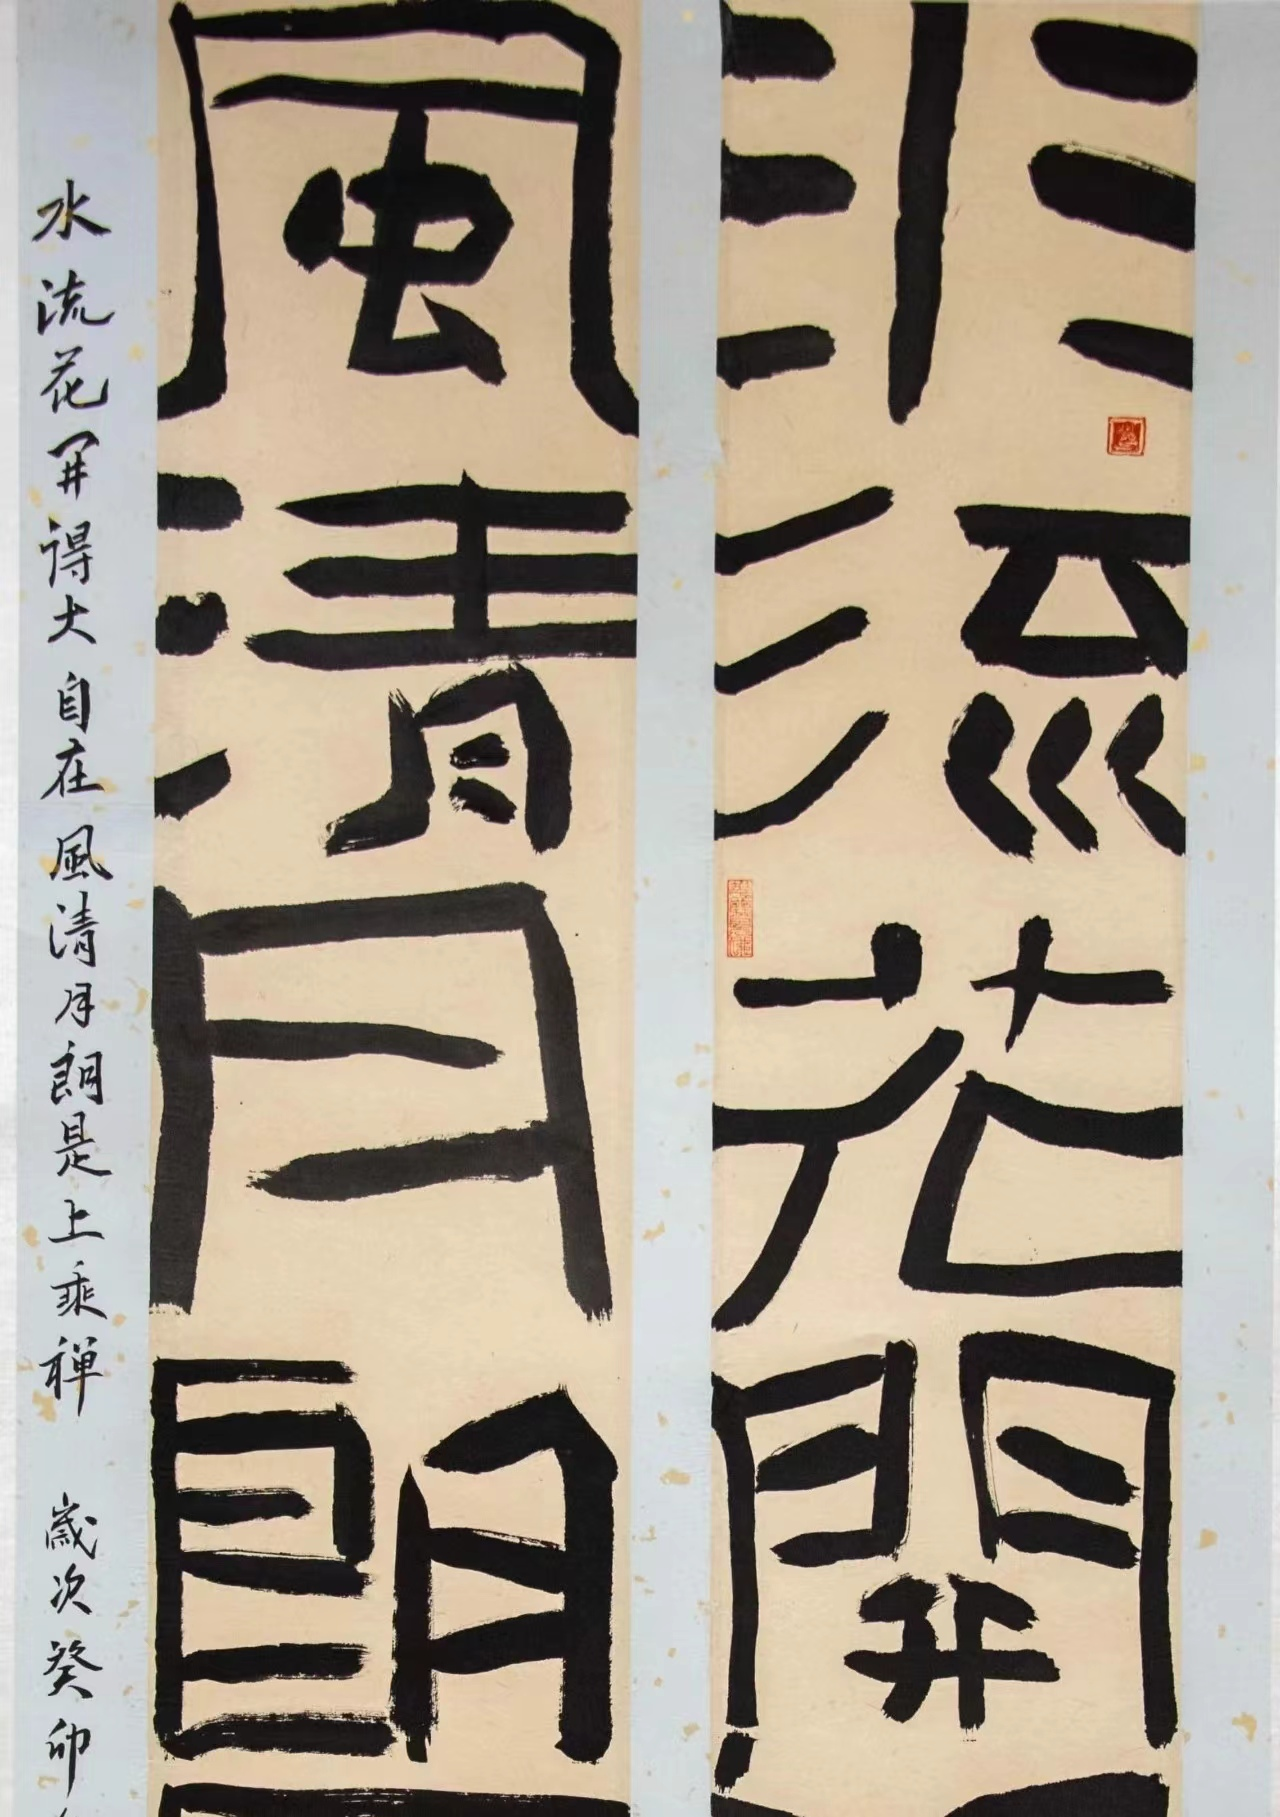 水流花開
風清月朗
水流花開得大自在風清月朗是上乘禅 歲次癸卯